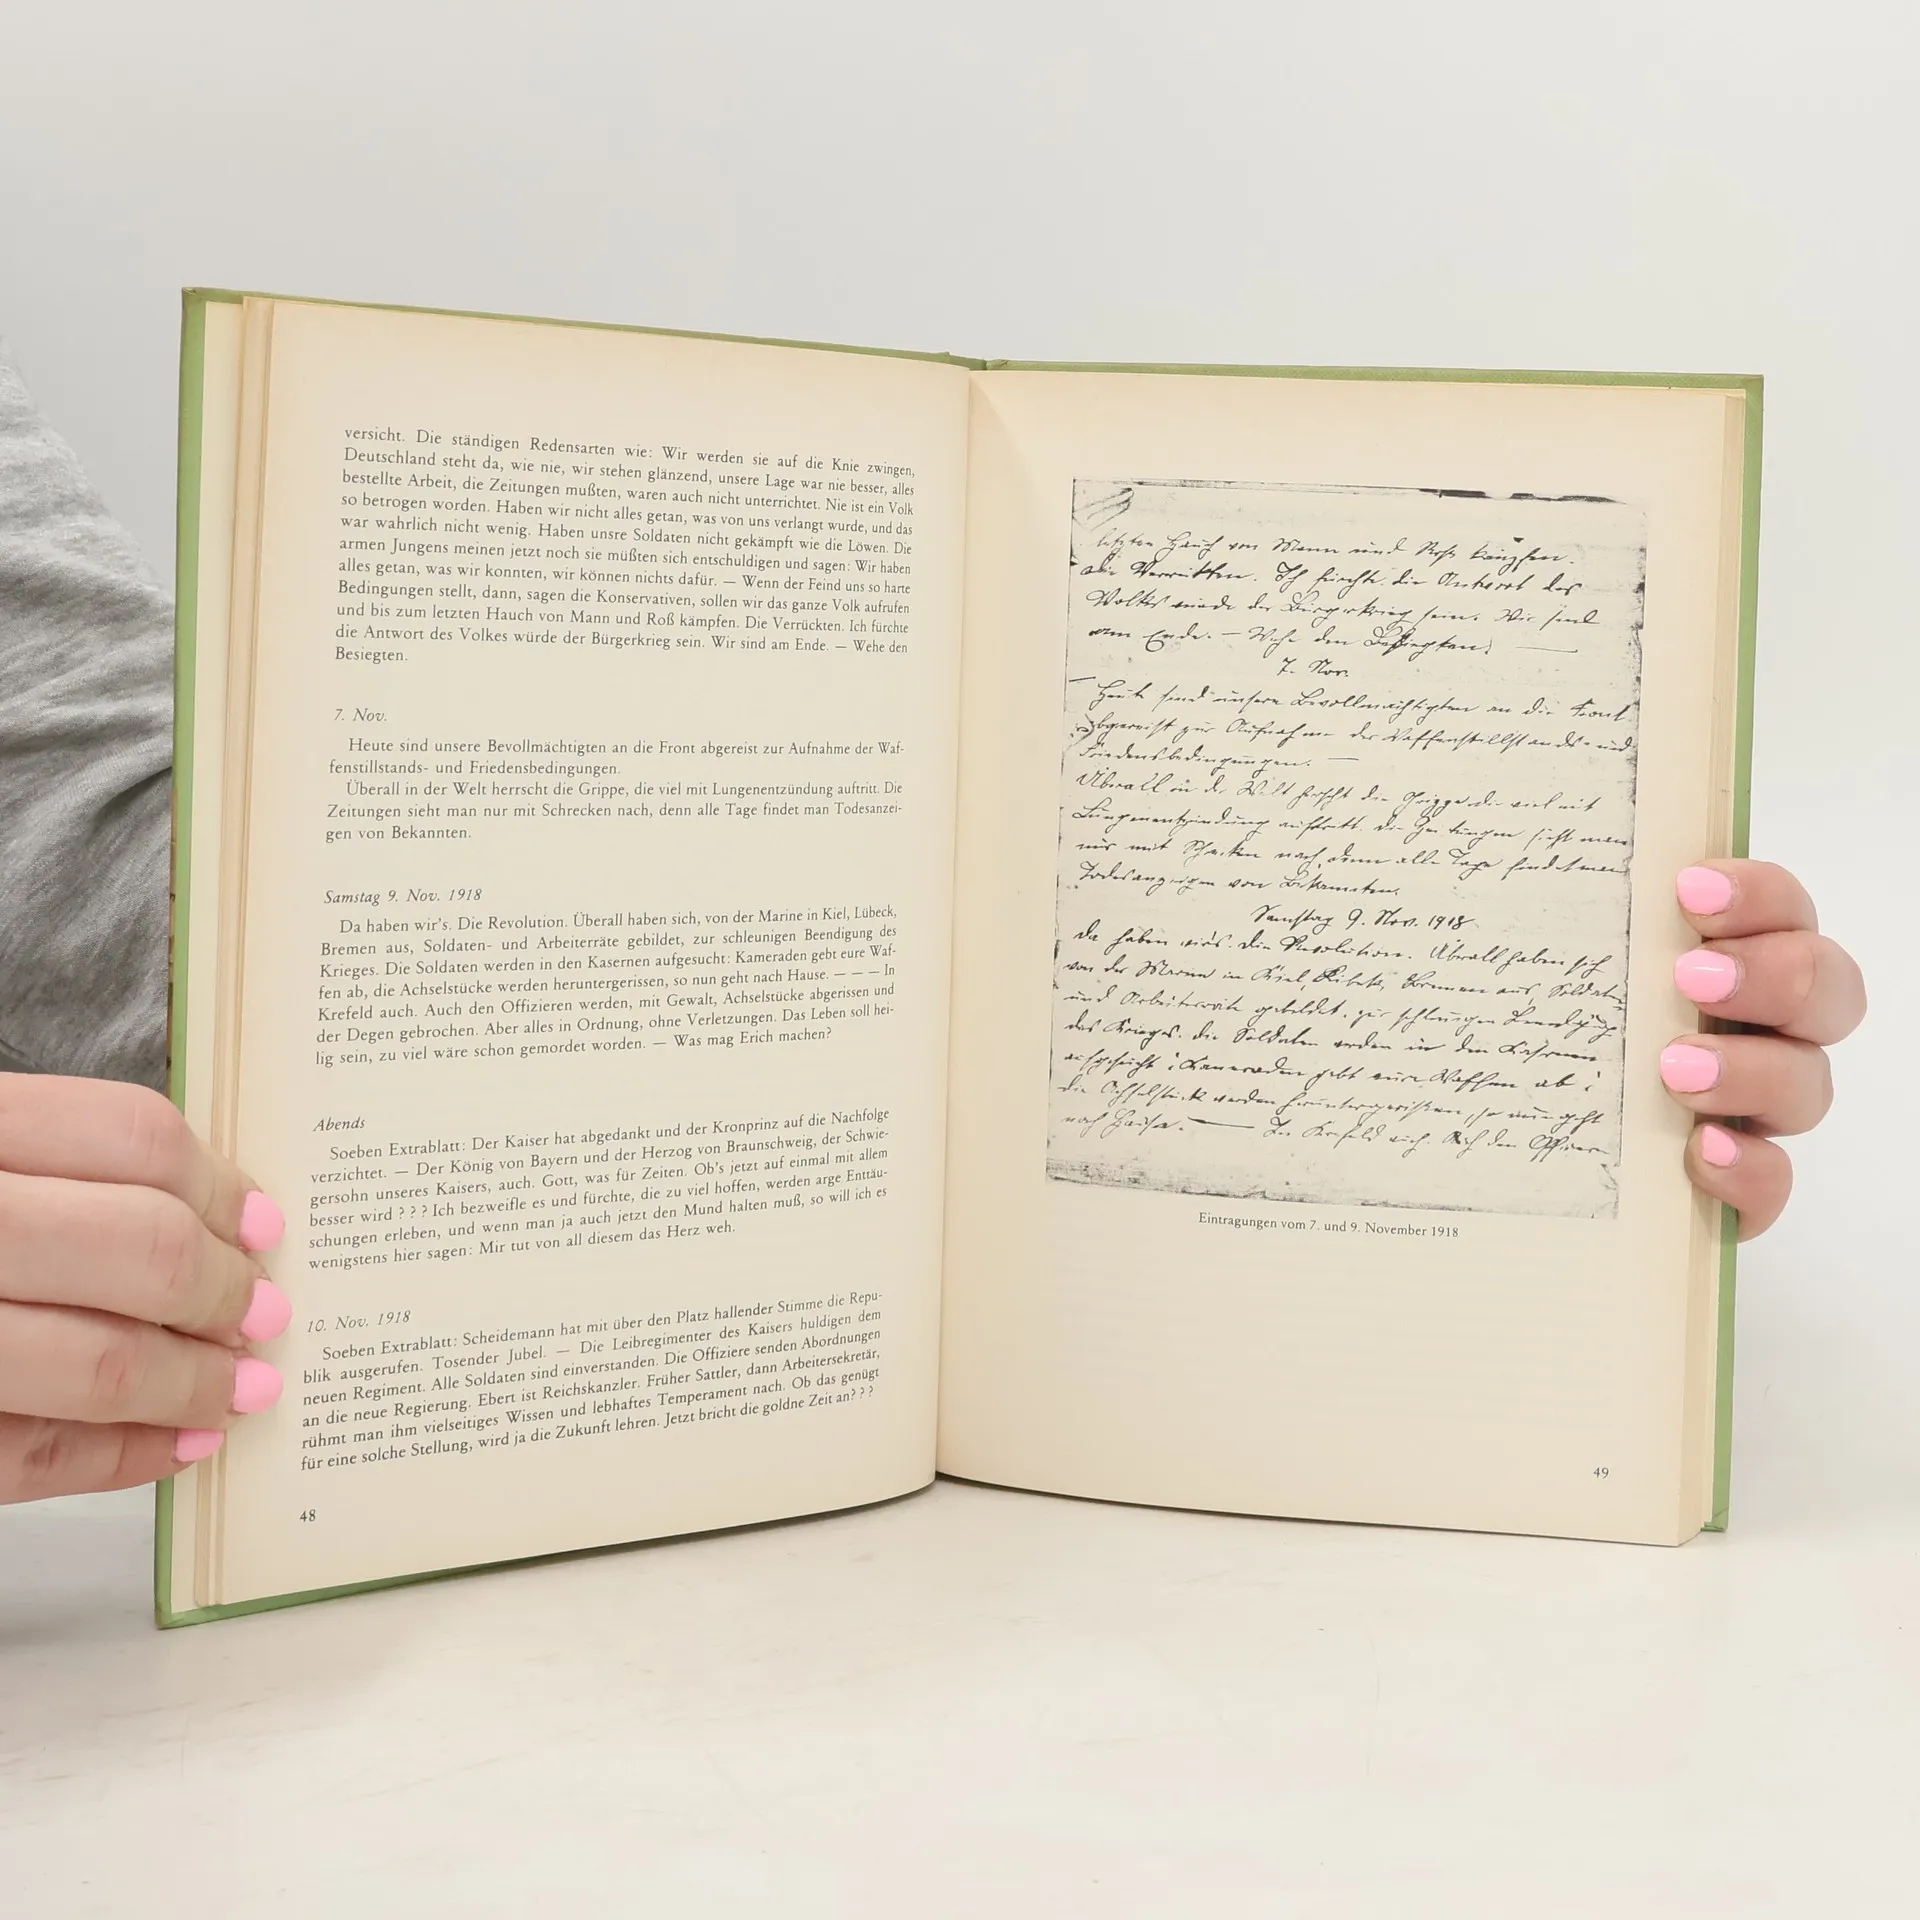 versicht. Die ständigen Redensarten wie: Wir werden sie auf die Knie zwingen,
Deutschland steht da, wie nie, wir stehen glänzend, unsere Lage war nie besser, alles
bestellte Arbeit, die Zeitungen mußten, waren auch nicht unterrichtet. Nie ist ein Volk
so betrogen worden. Haben wir nicht alles getan, was von uns verlangt wurde, und das
war wahrlich nicht wenig. Haben unsre Soldaten nicht gekämpft wie die Löwen. Die
armen Jungens meinen jetzt noch sie müßten sich entschuldigen und sagen: Wir haben
alles getan, was wir konnten, wir können nichts dafür. — Wenn der Feind uns so harte
Bedingungen stellt, dann, sagen die Konservativen, sollen wir das ganze Volk aufrufen
und bis zum letzten Hauch von Mann und Roß kämpfen. Die Verrückten. Ich fürchte
die Antwort des Volkes würde der Bürgerkrieg sein. Wir sind am Ende. — Wehe den
Besiegten.
7. Nov.
Heute sind unsere Bevollmächtigten an die Front abgereist zur Aufnahme der Waf-
fenstillstands- und Friedensbedingungen.
Überall in der Welt herrscht die Grippe, die viel mit Lungenentzündung auftritt. Die
Zeitungen sieht man nur mit Schrecken nach, denn alle Tage findet man Todesanzei-
gen von Bekannten.
Samstag 9. Nov. 1918
Da haben wir's. Die Revolution. Überall haben sich, von der Marine in Kiel, Lübeck,
Bremen aus, Soldaten- und Arbeiterräte gebildet, zur schleunigen Beendigung des
Krieges. Die Soldaten werden in den Kasernen aufgesucht: Kameraden gebt eure Waf-
fen ab, die Achselstücke werden heruntergerissen, so nun geht nach Hause. — — — In
Krefeld auch. Auch den Offizieren werden, mit Gewalt, Achselstücke abgerissen und
der Degen gebrochen. Aber alles in Ordnung, ohne Verletzungen. Das Leben soll hei-
lig sein, zu viel wäre schon gemordet worden. — Was mag Erich machen?
Abends
Soeben Extrablatt: Der Kaiser hat abgedankt und der Kronprinz auf die Nachfolge
verzichtet. — Der König von Bayern und der Herzog von Braunschweig, der Schwie-
gersohn unseres Kaisers, auch. Gott, was für Zeiten. Ob's jetzt auf einmal mit allem
besser wird ? ? ? Ich bezweifle es und fürchte, die zu viel hoffen, werden arge Enttäu-
schungen erleben, und wenn man ja auch jetzt den Mund halten muß, so will ich es
wenigstens hier sagen: Mir tut von all diesem das Herz weh.
10. Nov. 1918
Soeben Extrablatt: Scheidemann hat mit über den Platz hallender Stimme die Repu-
blik ausgerufen. Tosender Jubel. — Die Leibregimenter des Kaisers huldigen dem
neuen Regiment. Alle Soldaten sind einverstanden. Die Offiziere senden Abordnungen
an die neue Regierung. Ebert ist Reichskanzler. Früher Sattler, dann Arbeitersekretär,
rühmt man ihm vielseitiges Wissen und lebhaftes Temperament nach. Ob das genügt
für eine solche Stellung, wird ja die Zukunft lehren. Jetzt bricht die goldne Zeit an? ? ?
48
letzten Hauch von Mann und Roß kämpfen.
Die Verrückten. Ich fürchte die Antwort des
Volkes würde der Bürgerkrieg sein. Wir sind
am Ende. — Wehe den Besiegten. —
7. Nov.
Heute sind unsere Bevollmächtigten an die Front
abgereist zur Aufnahme der Waffenstillstands- und
Friedensbedingungen. —
Überall in der Welt herrscht die Grippe die viel mit
Lungenentzündung auftritt. Die Zeitungen sieht man
nur mit Schrecken nach, denn alle Tage findet man
Todesanzeigen von Bekannten.
Samstag 9. Nov. 1918
Da haben wir's. Die Revolution. Überall haben sich
von der Marine in Kiel, Lübeck, Bremen aus, Soldaten
und Arbeiterräte gebildet, zur schleunigen Beendigung
des Krieges. Die Soldaten werden in den Kasernen
aufgesucht: Kameraden gebt eure Waffen ab:
die Achselstücke werden heruntergerissen, so nun geht
nach Hause. — In Krefeld auch. Auch den Offizieren
Eintragungen vom 7. und 9. November 1918
49